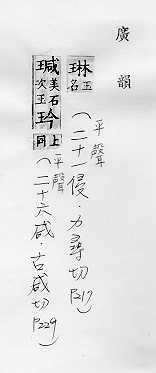 廣韻
琳玉名
平聲
(二十一侵·力尋切P217)
瑊美石次玉玪上同
平聲
(二十六咸·古咸切P229)